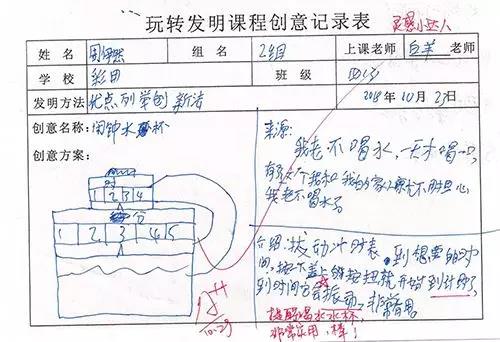 玩转发明课程创意记录表
灵感小达人
姓 名 周伊然 组 名 2组 上课老师 白羊 老师
学 校 彩田 班 级 四(3)
发明方法 优点列举创新法 2018年10月23日
创意名称: 闹钟水杯
创意方案:
来源:
我老不喝水,一天才喝一口,
有了这个我和我的家人就不用担心
我老不喝水了
介绍:拨动计时表,到想要的时
间,按下盖上的按扭就开始到计时了,
到时间它会振动,非常实用
2 3 4
分
1 2 3 4 5
10.29
提醒喝水水杯,
非常实用,棒!